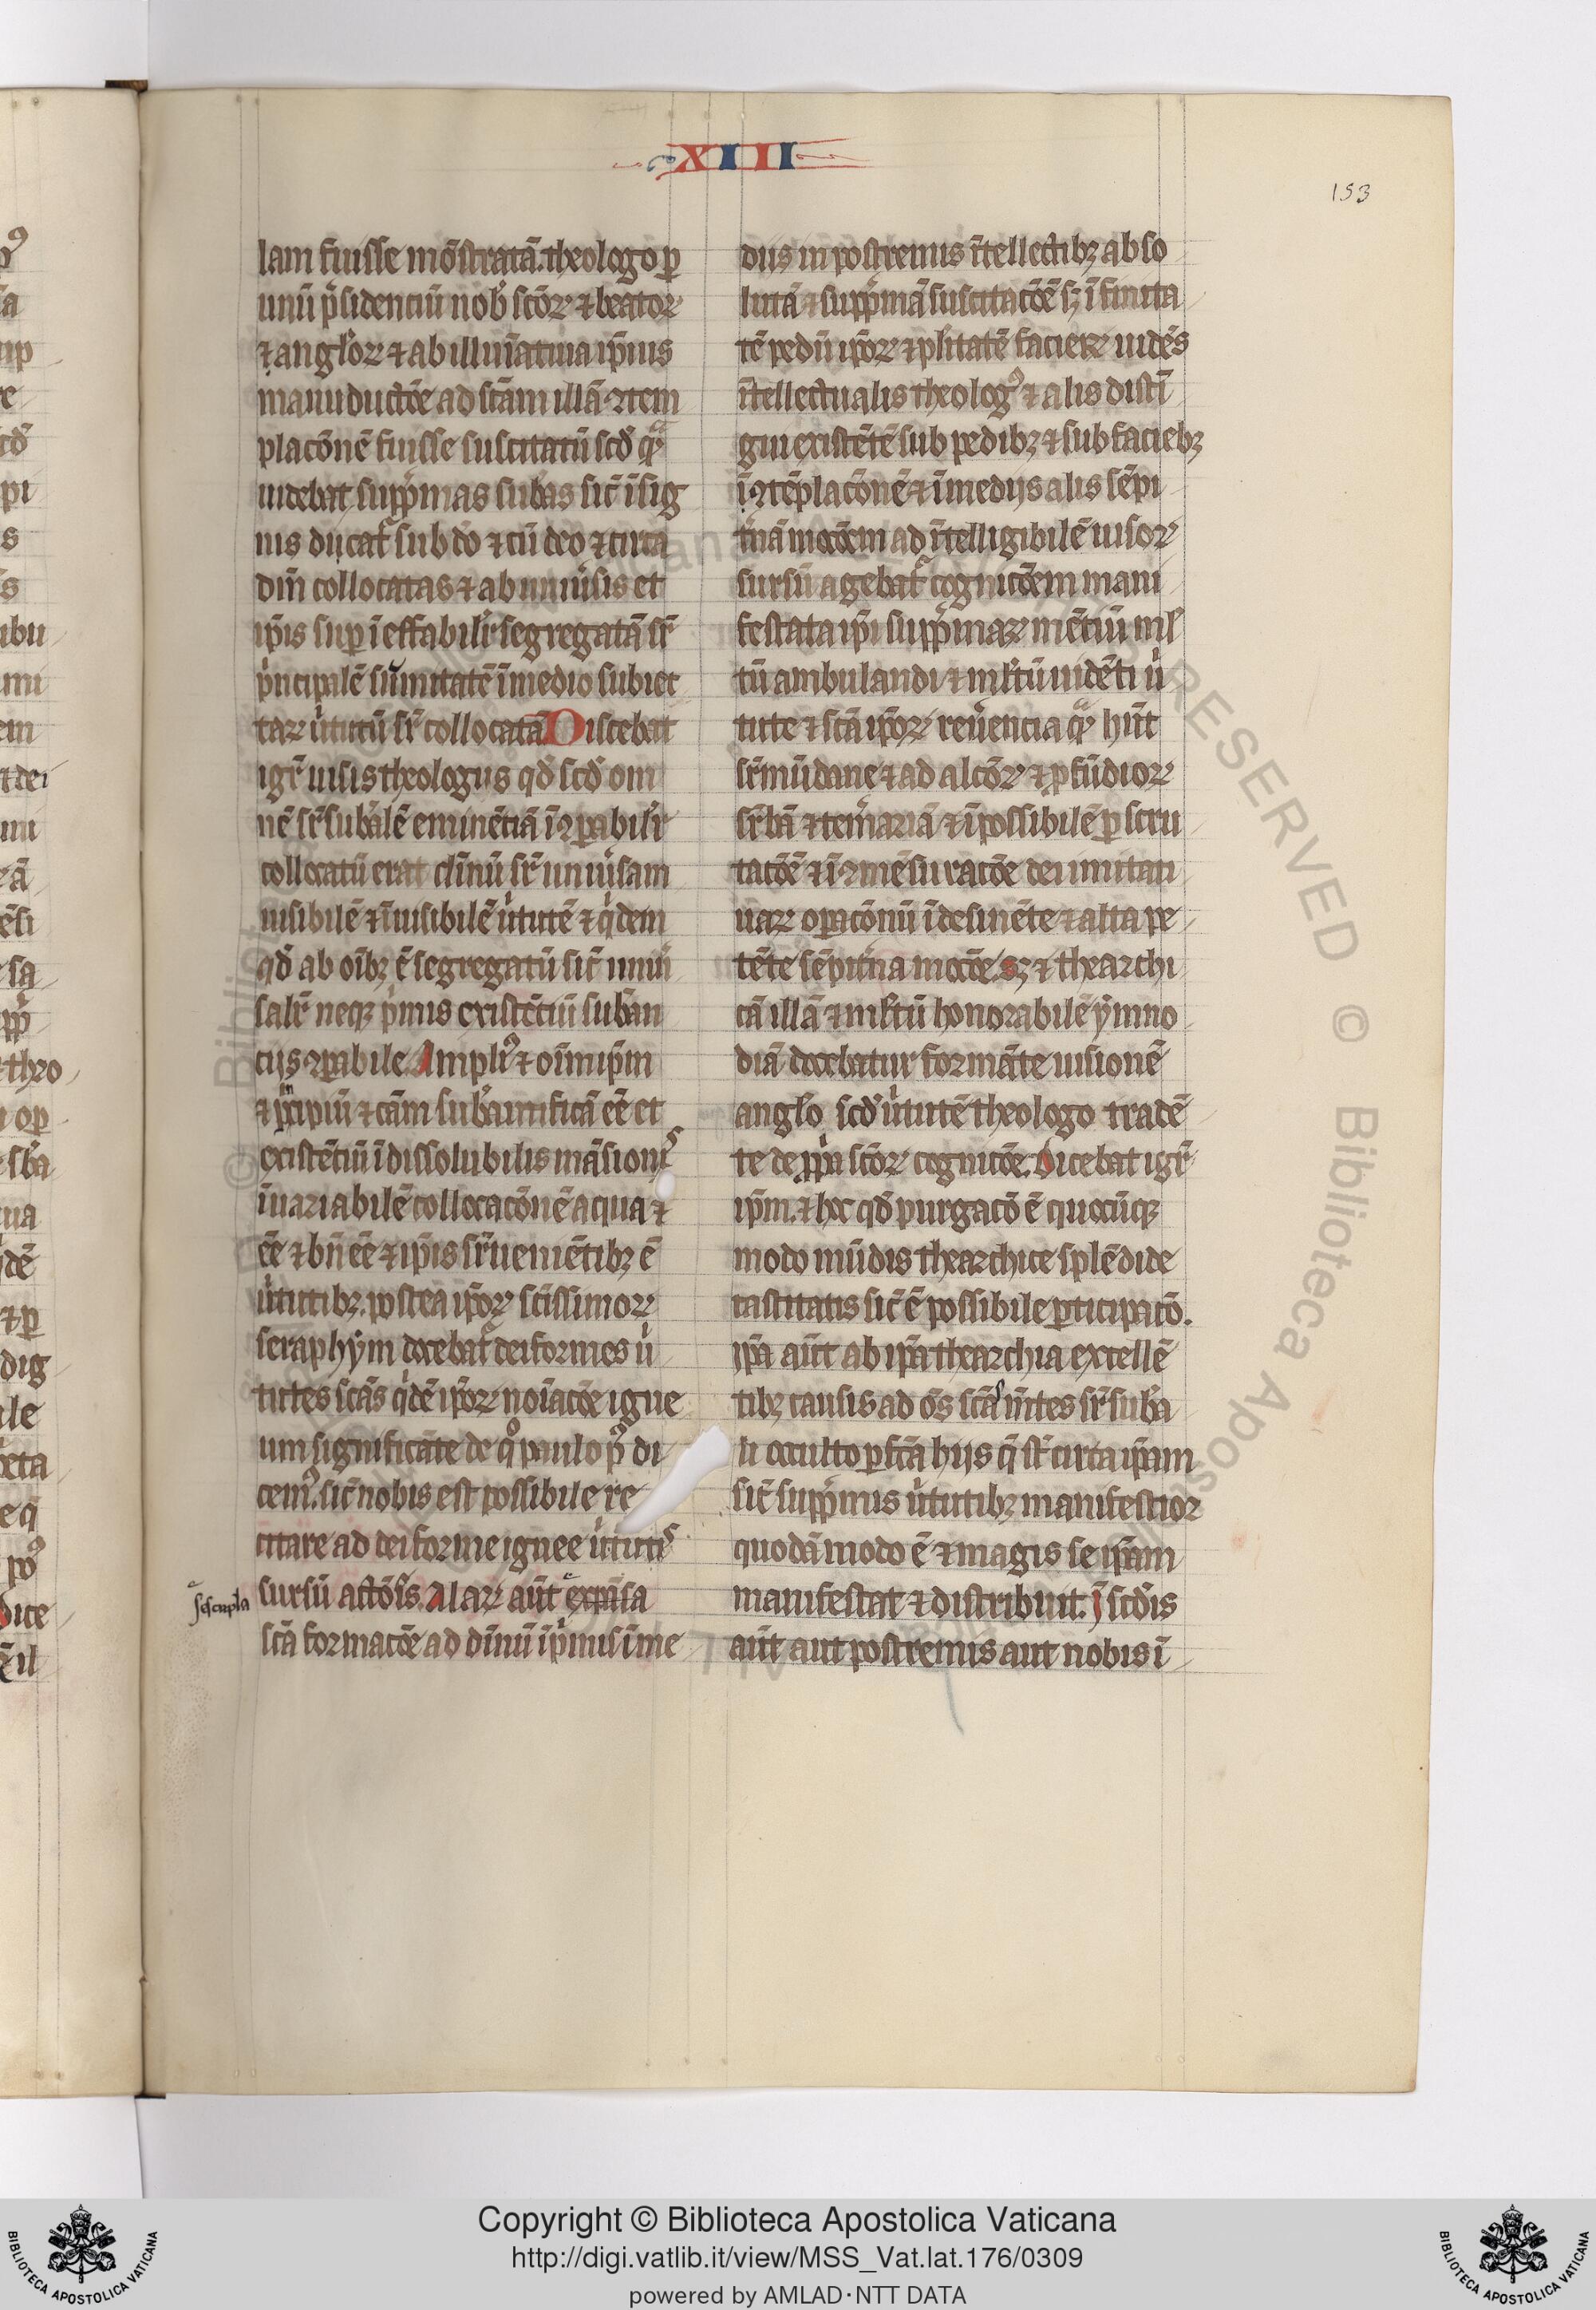 XIII
153
lam fuisse mõstratã. theologo ꝑ
unũ p̃sidenciũ nob̾ sc̃oꝝ ⁊ beatoꝝ
⁊ angl̾oꝝ ⁊ ab illuĩatiua ip̃ius
manuductõe ad sc̃am illã ꝯtem
placõnẽ fuisse suscitatũ scd̾ quã
uidebat supp̃mas subãs sic̃ ĩsig
nis ducat̃ sub do ⁊ cũ deo ⁊ circa
dm̃ collocatas ⁊ ab uniũsis et
ip̃is suꝑ ĩeffabilit̾ segregatã sr̃
p̾ncipalẽ sũmitatẽ ĩ medio subiec
taꝝ u̾tutũ sr̃ collocatã Discebat
igr̃ uisis theologus qd̾ scd̾ om
nẽ sr̃subãlẽ eminẽtiã ĩꝯꝑabilit̾
collocatũ erat diñũ sr̃ uniũsam
uisibilẽ ⁊ ĩuisibilẽ u̾tutẽ ⁊ q̾dem
qd̾ ab oĩbꝫ ẽ segregatũ sic̃ uniũ
salit̾ neqꝫ p̾mis existẽtiũ subãn
ciis ꝯꝑabile. Ampli᷒ ⁊ oĩm ip̃m
⁊ p̾ncipiũ ⁊ cãm subãntificã eẽ et
existẽtiũ ĩdissolubilis mãsionis
ĩuariabilẽ collocacõnẽ a qua ⁊
eẽ ⁊ bñ eẽ ⁊ ip̃is sr̃ueniẽtibꝫ ẽ
u̾tutibꝫ. postea ip̃oꝝ sc̃issimoꝝ
seraphym docebat̃ deiformes u̾
tutes sc̃as q̾dẽ ip̃oꝝ noĩacõe igne
um significãte de q̊ paulo p᷒ di
cem᷒. sic̃ nobis est possibile re
citare ad deiforme ignee u̾tutis
sursũ actõis. Alaꝝ aũt exp̃ssa
sescupla
sc̃a formacõe ad diñũ ĩ p̾mis ĩ me
diis in postremis ĩtellectibꝫ abso
lutã ⁊ supp̃mã suscitacõẽ sꝫ ĩfinita
tẽ pedũ ip̃oꝝ ⁊ pl̾itatẽ facieꝝ uidẽs
ĩtellectualis theolog᷒ ⁊ alis distĩ
gui existẽtẽ sub pedibꝫ ⁊ sub faciebꝫ
ĩ ꝯtẽplacõnẽ ⁊ ĩ mediis alis sẽpi
t̾nã mocõem ad ĩtelligibilẽ uisoꝝ
sursũ agebat̃ cognicõem mani
festata ip̃i supp̃maꝝ mẽtiũ ml̾
tũ ambulandi ⁊ ml̾tũ uidẽti u̾
tute ⁊ sc̃a ip̃oꝝ reũencia quã hñt
sr̃mũdane ⁊ ad alcõꝝ ⁊ ꝓfũdioꝝ
sr̃bã ⁊ tem̾ariã ⁊ ĩpossibilẽ ꝑscru
tacõẽ ⁊ ĩ ꝯmẽsuracõe dei imitati
uaꝝ oꝑacõnũ ĩdesinẽte ⁊ alta pe
tẽte sẽpit̾na mocõe. Sꝫ ⁊ thearchi
cã illã ⁊ ml̾tũ honorabilẽ ymno
diã docebatur formãte uisionẽ
angl̾o scd̾ u̾tutẽ theologo tradẽ
te de pp̾a sc̃oꝝ cognicõe. Dicebat igr̃
ip̃m. ⁊ hoc qd̾ purgacõ ẽ quocũqꝫ
modo mũdis thearchice splẽdide
castitatis sic̃ ẽ possibile ꝑticipacõ.
ip̃a aũt ab ip̃a thearchia excellẽ
tibꝫ causis ad oẽs sc̃as mẽtes sr̃subã
li occulto ꝑfc̃a hiis q̃ st̃ circa ip̃am
sic̃ supp̃mis u̾tutibꝫ manifestior
quodã modo ẽ ⁊ magis seip̃am
manifestat ⁊ distribuit. J scd̾is
aũt aut postremis aut nobis ĩ
Copyright © Biblioteca Apostolica Vaticana
http://digi.vatlib.it/view/MSS_Vat.lat.176/0309
powered by AMLAD·NTT DATA
BIBLIOTECA APOSTOLICA VATICANA
BIBLIOTECA APOSTOLICA VATICANA